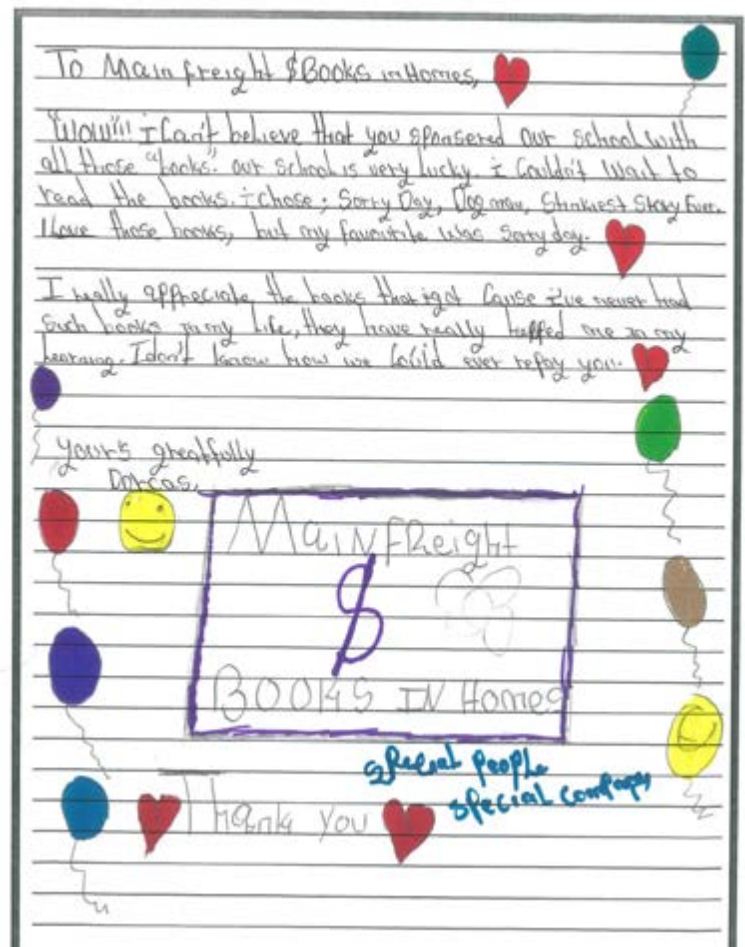 To Mainfreight $Books in Homes,
"WOW!!! i Can't believe that you sponsered our school with
all those "books." our school is very lucky. i Couldn't Wait to
read the books. i chose ; Sorry Day, Dog man, Stinkiest Story Ever.
I Love those books, but my favourtite was Sorry day.
I really appreciate the books that igot Cause i've never had
Such books in my life, they have really helped me in my
learning. I don't know how we Could ever repay you.
yours greatfully
Dorcas.
MainFReight
$
BOOKS IN Homes
special people
special company
Thank you